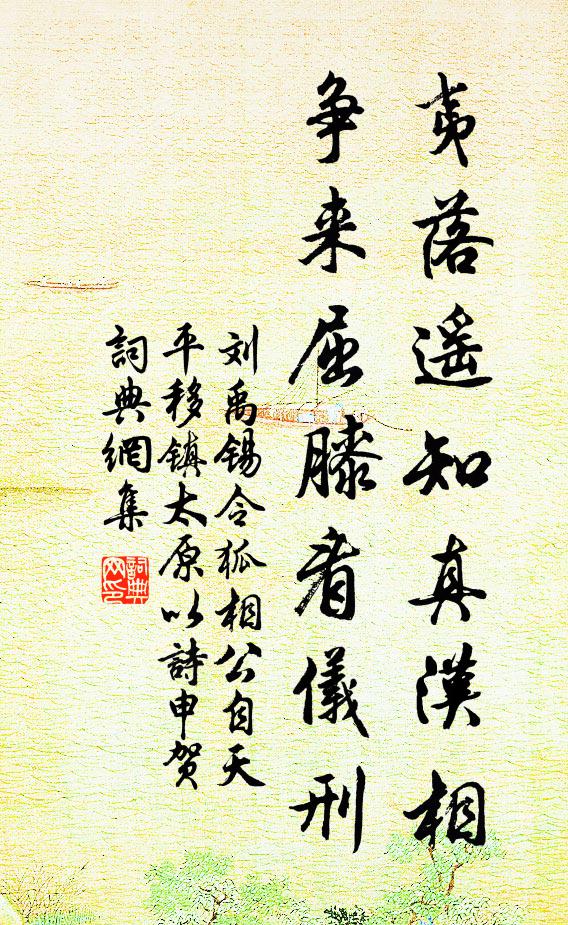 夷落遥知真漢相
争来屈膝看儀刑
刘禹锡令狐相公自天
平移鎮太原以詩申贺
詞典網集
詞典
网印